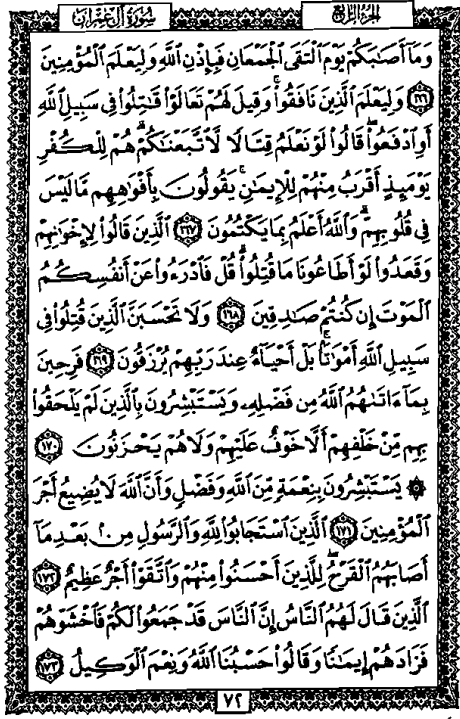 سُورَةُ آلِ عِمْرَانَ الجُزءُ الرَّابِعُ
وَمَآ أَصَٰبَكُمْ يَوْمَ ٱلْتَقَى ٱلْجَمْعَانِ فَبِإِذْنِ ٱللَّهِ وَلِيَعْلَمَ ٱلْمُؤْمِنِينَ
١٦٦ وَلِيَعْلَمَ ٱلَّذِينَ نَافَقُوا۟ۚ وَقِيلَ لَهُمْ تَعَالَوْا۟ قَٰتِلُوا۟ فِى سَبِيلِ ٱللَّهِ
أَوِ ٱدْفَعُوا۟ۖ قَالُوا۟ لَوْ نَعْلَمُ قِتَالًا لَّٱتَّبَعْنَٰكُمْۗ هُمْ لِلْكُفْرِ
يَوْمَئِذٍ أَقْرَبُ مِنْهُمْ لِلْإِيمَٰنِۚ يَقُولُونَ بِأَفْوَٰهِهِم مَّا لَيْسَ
فِى قُلُوبِهِمْۗ وَٱللَّهُ أَعْلَمُ بِمَا يَكْتُمُونَ ١٦٧ ٱلَّذِينَ قَالُوا۟ لِإِخْوَٰنِهِمْ
وَقَعَدُوا۟ لَوْ أَطَاعُونَا مَا قُتِلُوا۟ۗ قُلْ فَٱدْرَءُوا۟ عَنْ أَنفُسِكُمُ
ٱلْمَوْتَ إِن كُنتُمْ صَٰدِقِينَ ١٦٨ وَلَا تَحْسَبَنَّ ٱلَّذِينَ قُتِلُوا۟ فِى
سَبِيلِ ٱللَّهِ أَمْوَٰتًۢاۚ بَلْ أَحْيَآءٌ عِندَ رَبِّهِمْ يُرْزَقُونَ ١٦٩ فَرِحِينَ
بِمَآ ءَاتَىٰهُمُ ٱللَّهُ مِن فَضْلِهِۦ وَيَسْتَبْشِرُونَ بِٱلَّذِينَ لَمْ يَلْحَقُوا۟
بِهِم مِّنْ خَلْفِهِمْ أَلَّا خَوْفٌ عَلَيْهِمْ وَلَا هُمْ يَحْزَنُونَ ١٧٠
۞ يَسْتَبْشِرُونَ بِنِعْمَةٍ مِّنَ ٱللَّهِ وَفَضْلٍ وَأَنَّ ٱللَّهَ لَا يُضِيعُ أَجْرَ
ٱلْمُؤْمِنِينَ ١٧١ ٱلَّذِينَ ٱسْتَجَابُوا۟ لِلَّهِ وَٱلرَّسُولِ مِنۢ بَعْدِ مَآ
أَصَابَهُمُ ٱلْقَرْحُۚ لِلَّذِينَ أَحْسَنُوا۟ مِنْهُمْ وَٱتَّقَوْا۟ أَجْرٌ عَظِيمٌ ١٧٢
ٱلَّذِينَ قَالَ لَهُمُ ٱلنَّاسُ إِنَّ ٱلنَّاسَ قَدْ جَمَعُوا۟ لَكُمْ فَٱخْشَوْهُمْ
فَزَادَهُمْ إِيمَٰنًا وَقَالُوا۟ حَسْبُنَا ٱللَّهُ وَنِعْمَ ٱلْوَكِيلُ ١٧٣
٧٢